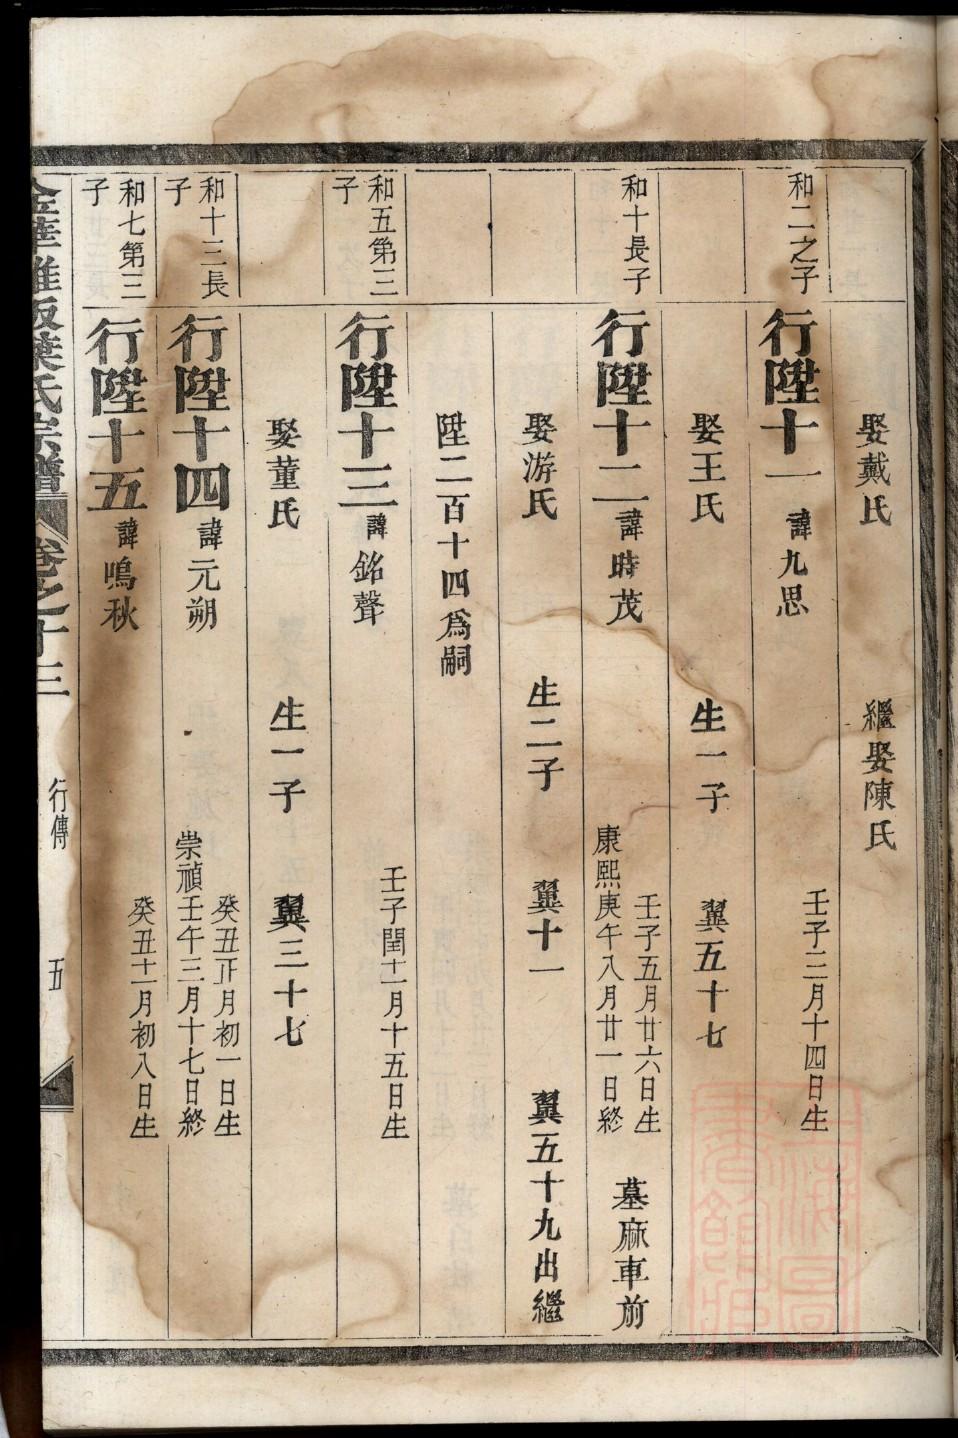 娶戴氏 繼娶陳氏
和二之子
行陞十一 諱九思 壬子三月十四日生
娶王氏 生一子 翼五十七
和十長子
行陞十二 諱時茂 壬子五月廿六日生 康熙庚午八月廿一日終 墓麻車前
娶游氏 生二子 翼十一 翼五十九出繼
陞二百十四爲嗣
和五第三子
行陞十三 諱銘聲 壬子閏十一月十五日生
娶董氏 生一子 翼三十七
和十三長子
行陞十四 諱元朔 癸丑正月初一日生 崇禎壬午三月十七日終
和七第三子
行陞十五 諱鳴秋 癸丑十一月初八日生
葉氏宗譜 卷之十三 行傳 五